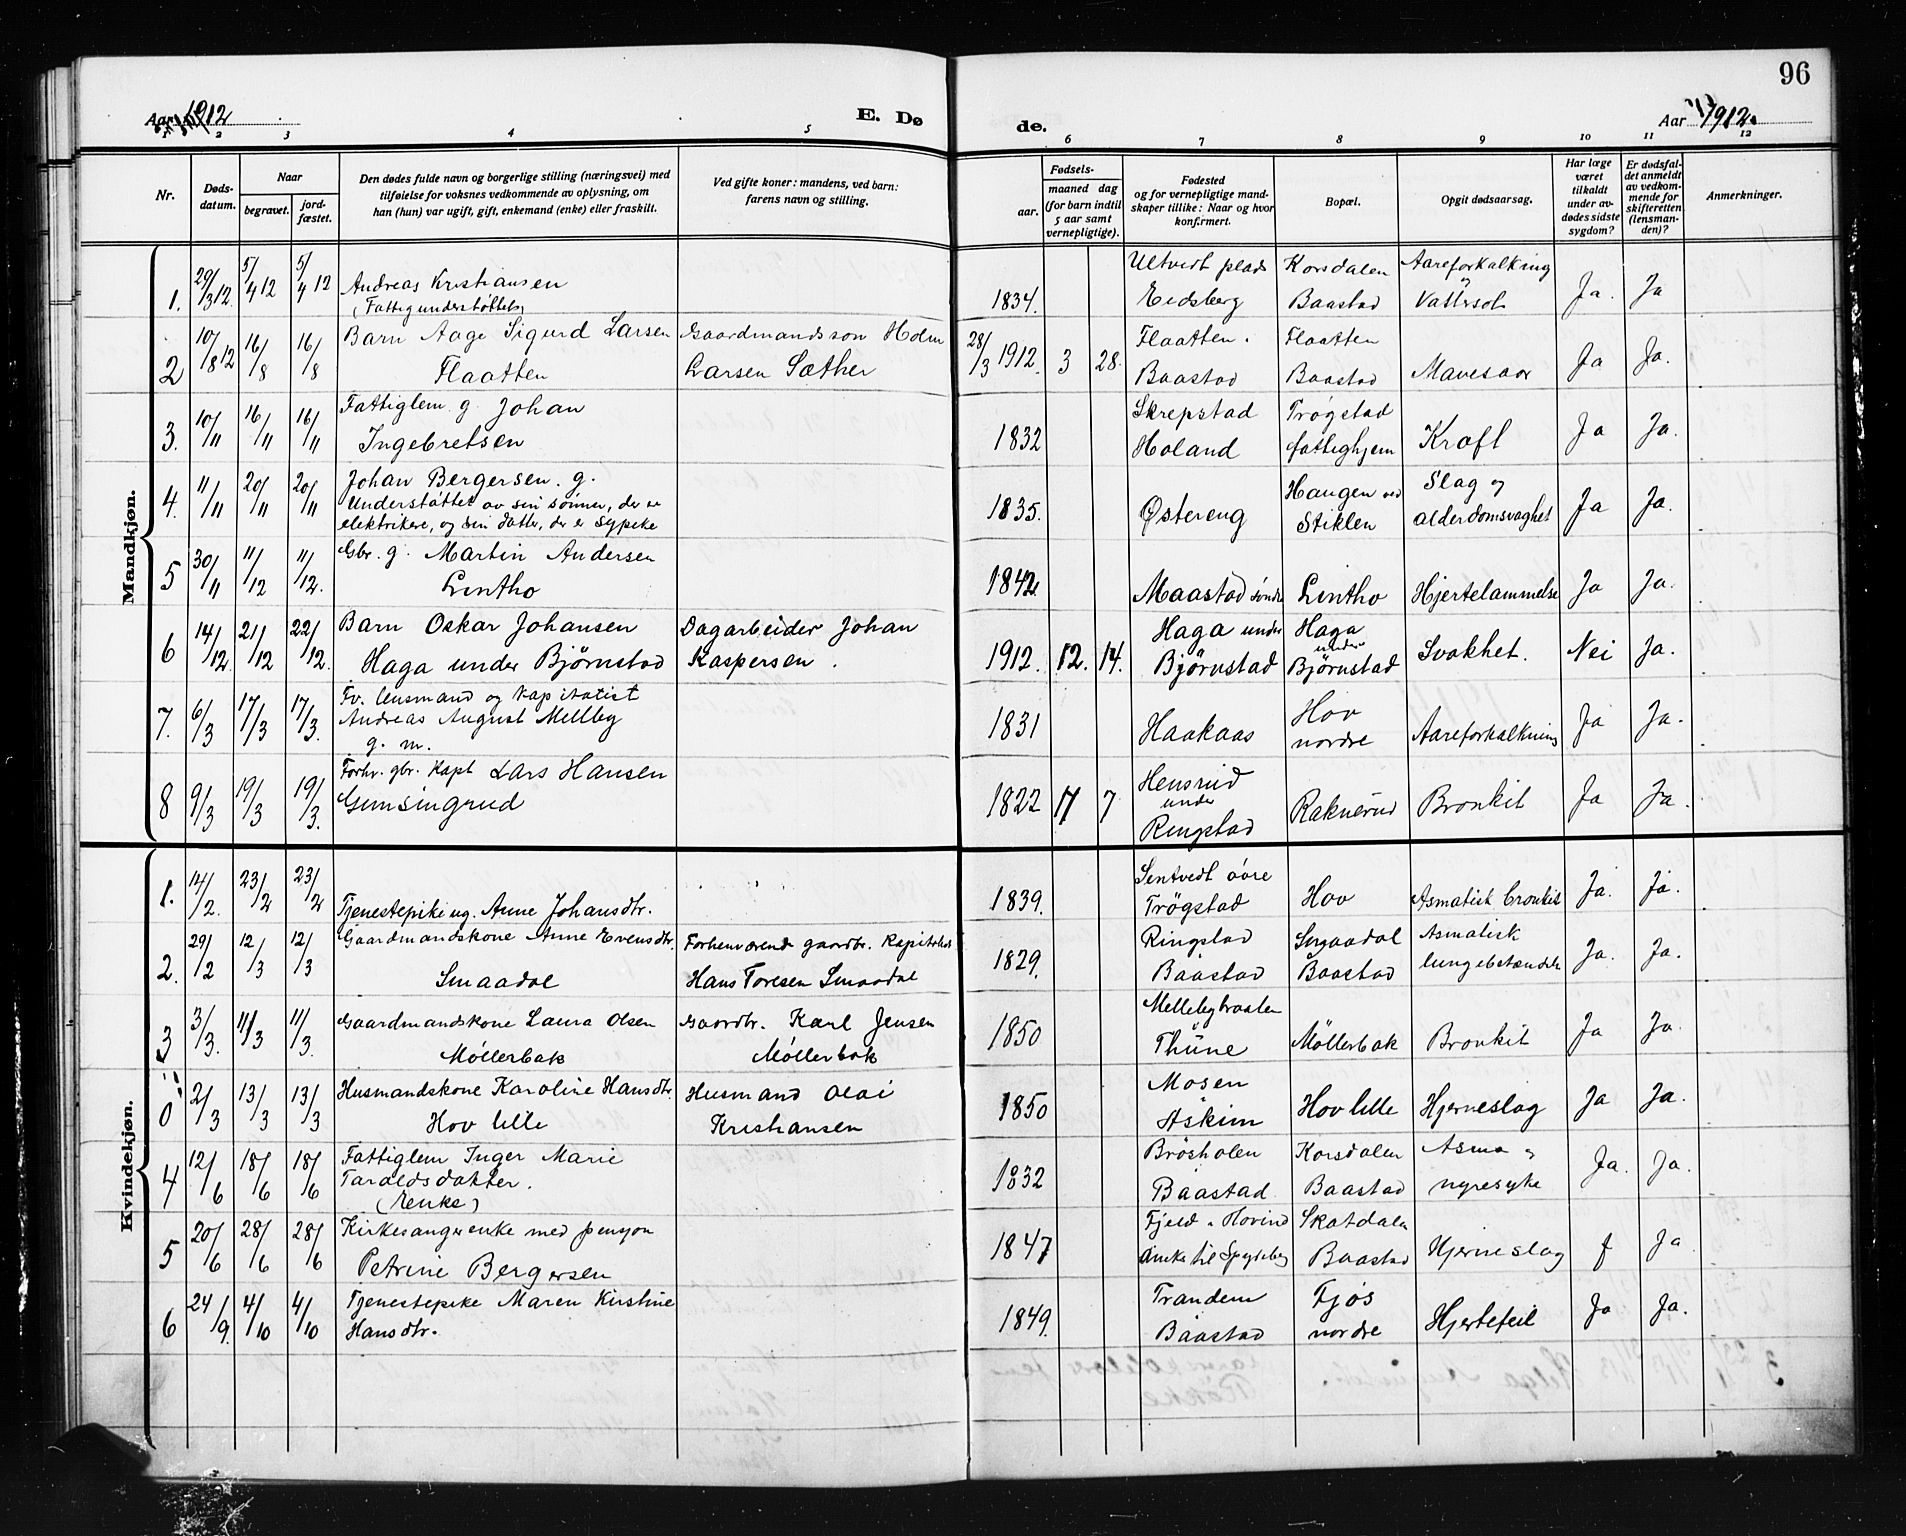 96
Aar 1912
E. Dø
de.
Aar 1912.
1 2 3 4 5 6 7 8 9 10 11 12
Nr.
Døds-
datum.
Naar
begravet.
jord-
fæstet.
Den dødes fulde navn og borgerlige stilling (næringsvei) med
tilføielse for voksnes vedkommende av oplysning, om
han (hun) var ugift, gift, enkemand (enke) eller fraskilt.
Ved gifte koner: mandens, ved barn:
farens navn og stilling.
Fødsels-
aar.
maaned dag
(for barn indtil
5 aar samt
vernepligtige).
Fødested
og for vernepligtige mand-
skaper tillike: Naar og hvor
konfirmert.
Bopæl.
Opgit dødsaarsag.
Har læge
været
tilkaldt
under av-
dødes sidste
sygdom?
Er dødsfal-
det anmeldt
av vedkom-
mende for
skifteretten
(lensman-
den)?
Anmerkninger.
Mandkjøn.
1. 29/3 12. 5/4 12 5/4 12 Andreas Kristiansen
(Fattigunderstøttels) 1834. Ultvedt plads
Eidsberg Korsdalen
Baastad Aareforkalkning
og
Vattersot Ja. Ja
2 10/8 12 16/8 16/8 Barn Aage Sigurd Larsen
Flaatten Gaardmandsson Holm
Larsen Sæther 28/3 1912. 3 28. Flaatten.
Baastad Flaatten
Baastad Mavesaar Ja Ja.
3. 10/11 16/11 16/11 Fattiglem. g. Johan
Ingebretsen 1832 Skrepstad
Høland Trøgstad
fattighjem Kræft Ja Ja.
4. 11/11 20/11 20/11 Johan Bergersen. g.
Understøttet av sin sønner, der er
elektrikere, og sin datter, der er sypike 1835. Østereng Haugen ved
Stiklen Slag og
alderdomsvaghet Ja Ja.
5 30/11 11/12 11/12. Gbr. g. Martin Andersen
Lintho 1842 Maastad søndre Lintho Hjertelammelse Ja Ja.
6 14/12. 21/12 22/12. Barn Oskar Johansen
Haga under Bjørnstad Dagarbeider Johan
Kaspersen. 1912. 12. 14. Haga under
Bjørnstad Haga
under
Bjørnstad Svakhet. Nei Ja.
7. 6/3 17/3 17/3. Fv. lensmand og kapitalist
Andreas August Mellby
g. m. 1831 Haakaas Hov
nordre Aareforkalkning Ja Ja.
8 9/3 19/3 19/3. Forhv. gbr. Kapt Lars Hansen
Gimsingrud 1822 7 Hensrud
under
Ringstad Raknerud Bronkit Ja Ja.
Kvindekjøn.
1. 14/2. 23/2 23/2 Tjenestepike ug. Anne Johansdtr. 1839. Sentvedt øvre
Trøgstad Hov Asmatisk bronkit Ja. Ja.
2. 29/2 12/3 12/3 Gaardmandskone Anne Evensdtr.
Smaadal Forhenværende gaardbr. Kapitalist
Hans Toresen Smaadal 1829. Ringstad
Baastad Smaadal
Baastad Asmatisk
lungebetændelse Ja. Ja.
3 3/3. 11/3 11/3. Gaardmandskone Laura Olsen
Møllerbak Gaardbr. Karl Jensen
Møllerbak 1850 Mellebybraaten
Thüne Møllerbak Bronkit Ja Ja.
0 2/3 13/3 13/3 Husmandskone Karoline Hansdtr.
Hov lille Husmand Olai
Kristiansen 1850 Mosen
Askim Hov lille Hjerneslag Ja Ja.
4 12/6 18/6 18/6 Fattiglem Inger Marie
Taraldsdatter.
(Enke) 1832 Brøsholen
Baastad. Korsdalen
Baastad Asma og
nyresyke Ja. Ja.
5 20/6 28/6 28/6 Kirkesangerenke med penson
Petrine Bergersen 1847 Fjeld i Hovind
aneks til Spydeberg Skatdalen
Baastad Hjerneslag J Ja
6 24/9. 4/10 4/10 Tjenestepike Maren Kirstine
Hansdtr. 1849. Trandem
Baastad Fjøs
nordre Hjertefeil Ja Ja.